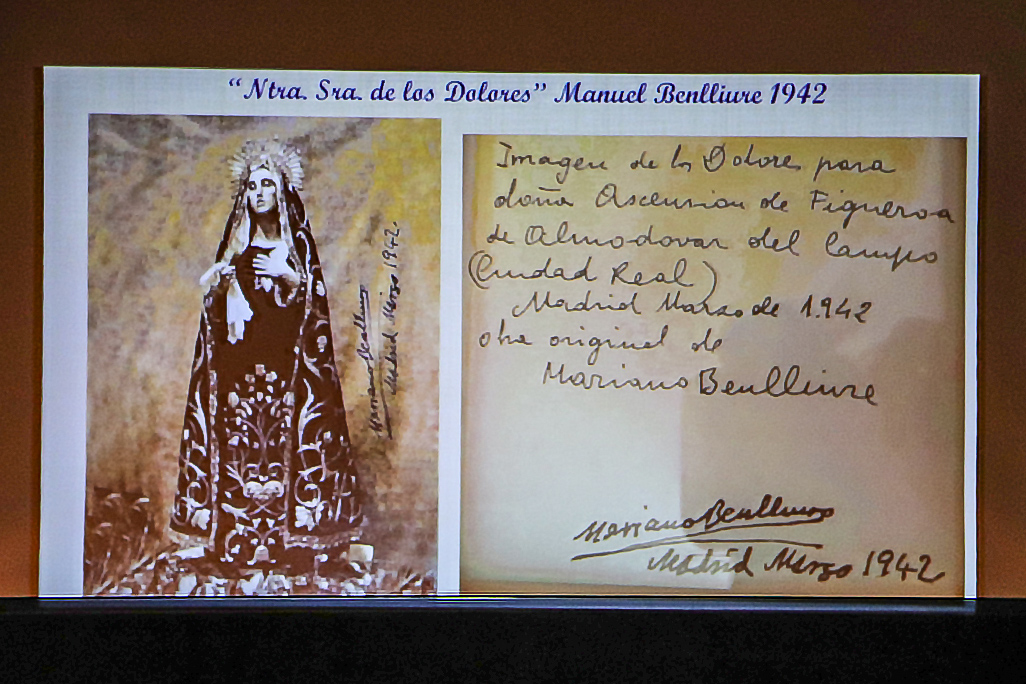 “Ntra. Sra. de los Dolores” Manuel Benlliure 1942
Mariano Benlliure
Madrid Marzo 1942
Imagen de los Dolores para
doña Ascension de Figueroa
de Almodovar del Campo
(Ciudad Real)
Madrid Marzo de 1.942
obra original de
Mariano Benlliure
Mariano Benlliure
Madrid Marzo 1942